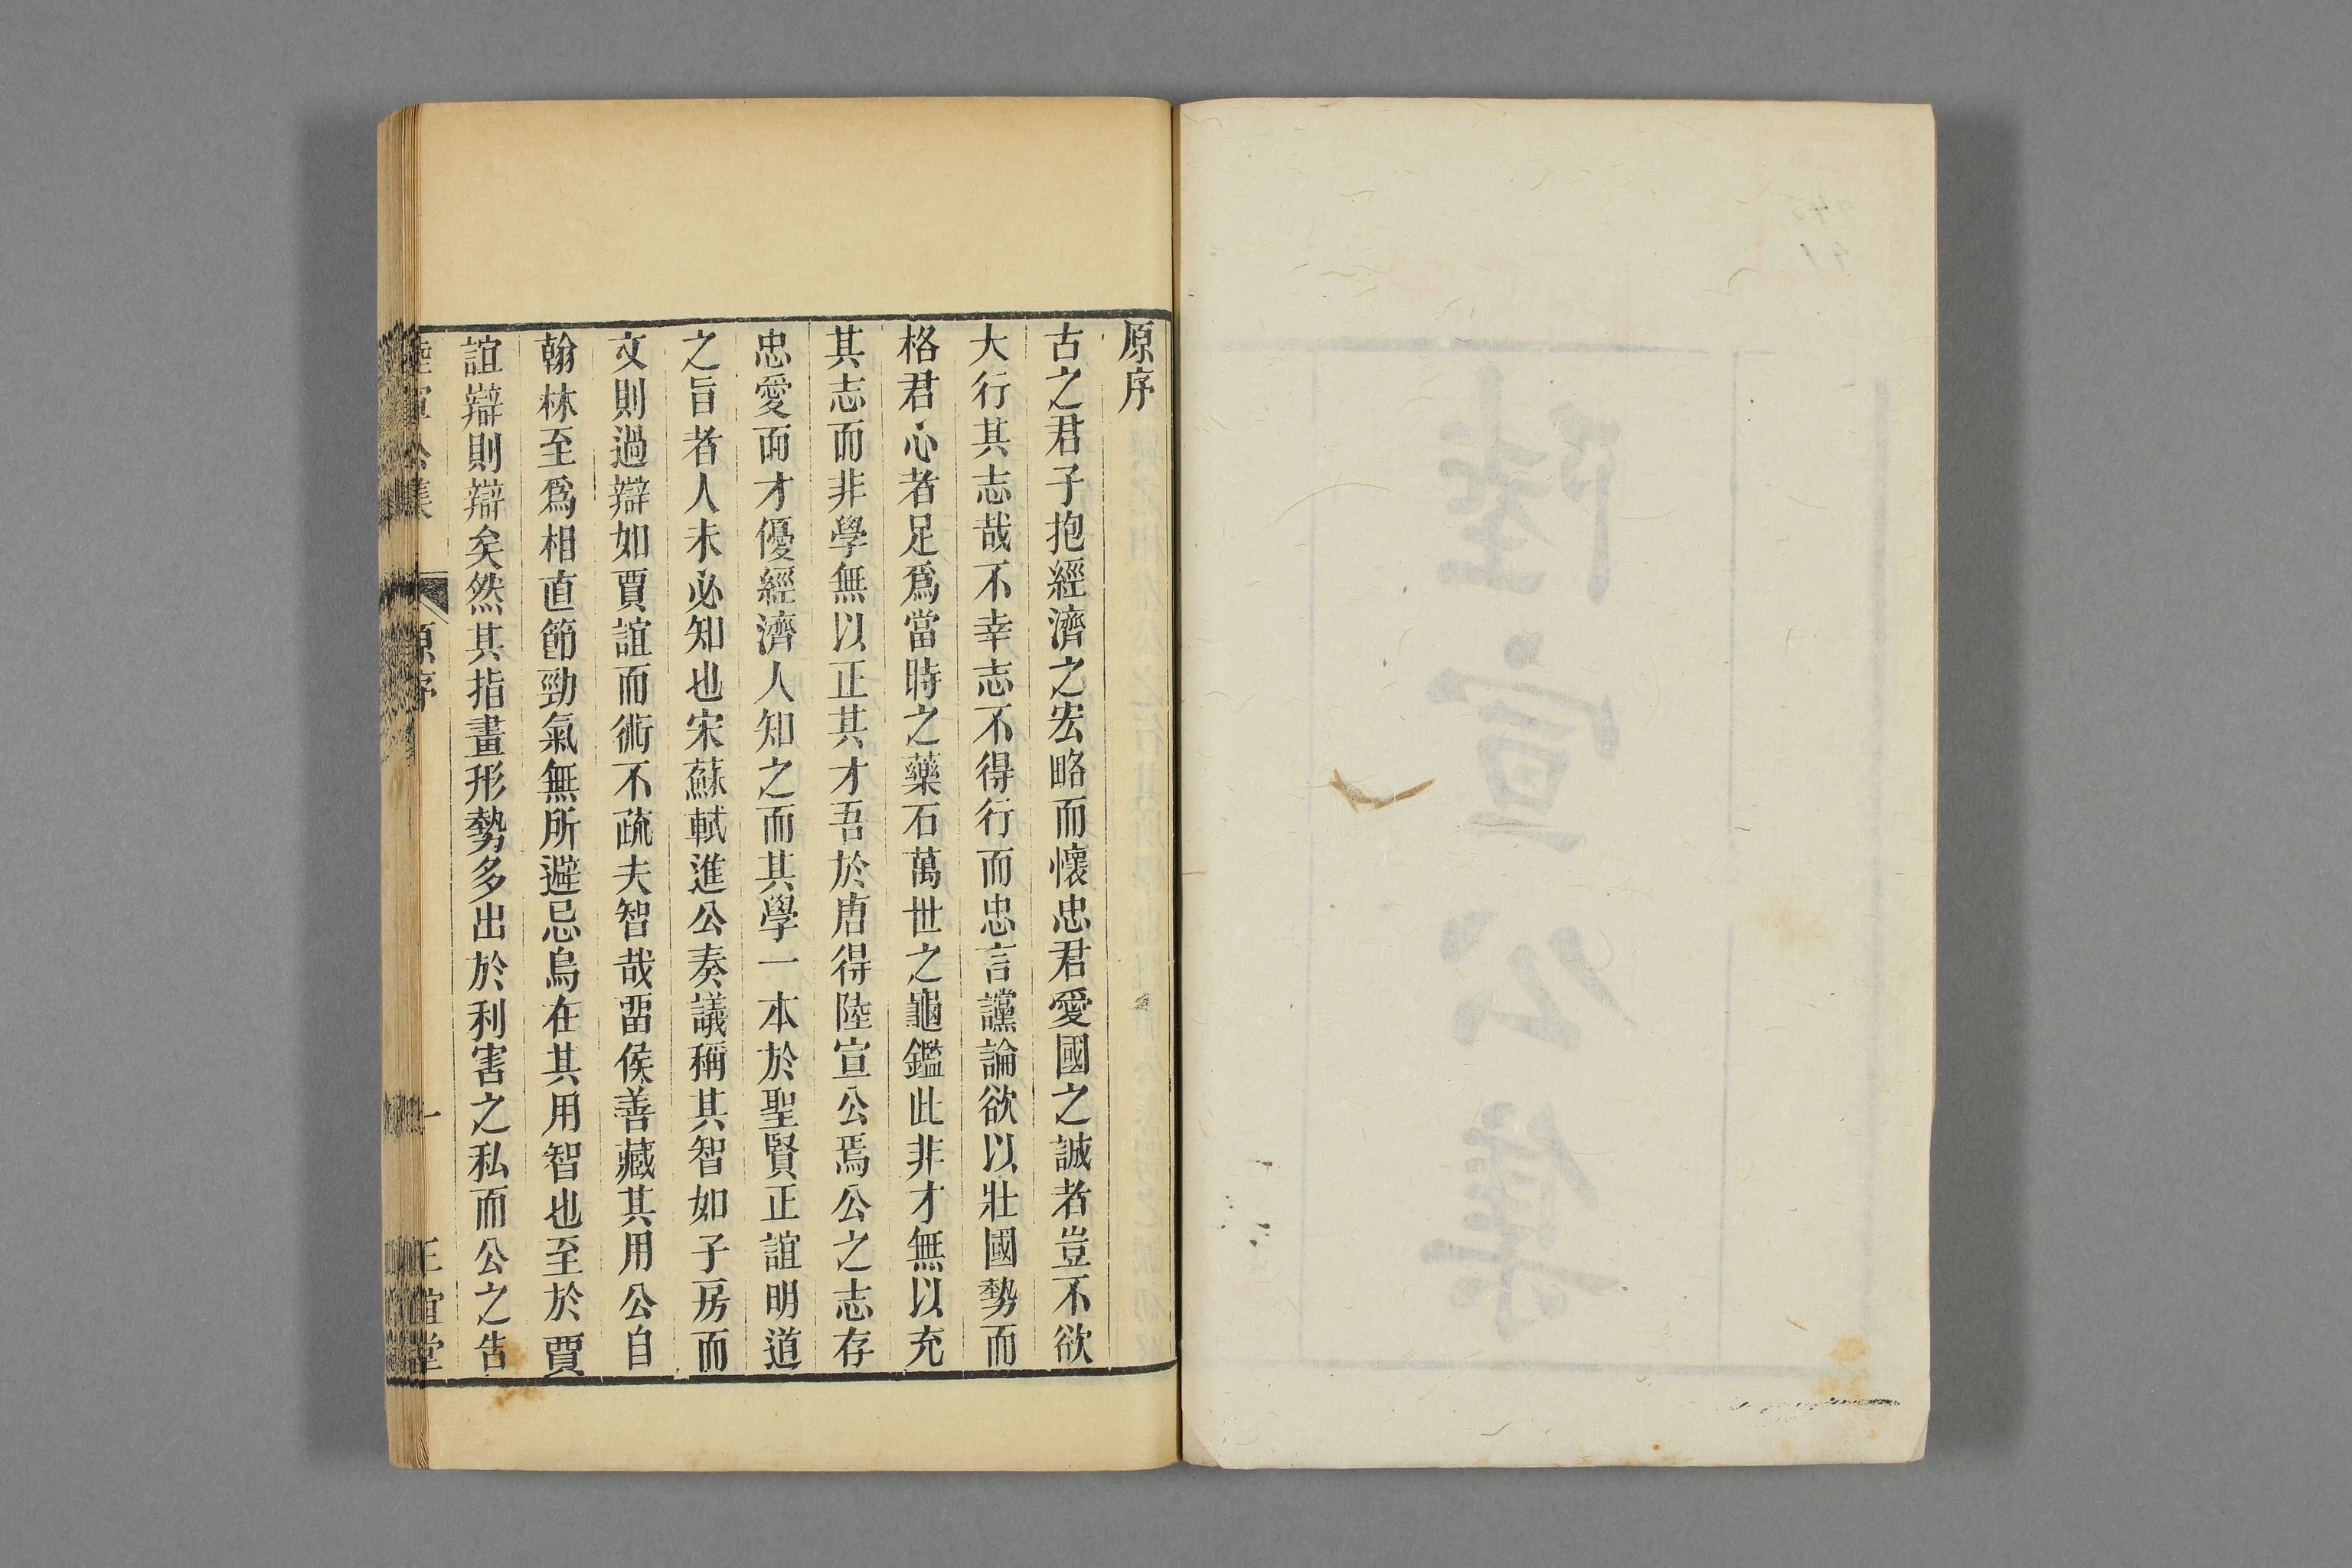 原序
古之君子抱經濟之宏略而懷忠君愛國之誠者豈不欲
大行其志哉不幸志不得行而忠言讜論欲以壯國勢而
格君心者足爲當時之藥石萬世之龜鑑此非才無以充
其志而非學無以正其才吾於唐得陸宣公焉公之志存
忠愛而才優經濟人知之而其學一本於聖賢正誼明道
之旨者人未必知也宋蘇軾進公奏議稱其智如子房而
文則過辯如賈誼而術不疏夫智哉畱侯善藏其用公自
翰林至爲相直節勁氣無所避忌烏在其用智也至於賈
誼辯則辯矣然其指畫形勢多出於利害之私而公之告
陸宣公集 原序 一 正誼堂
陸宣公集